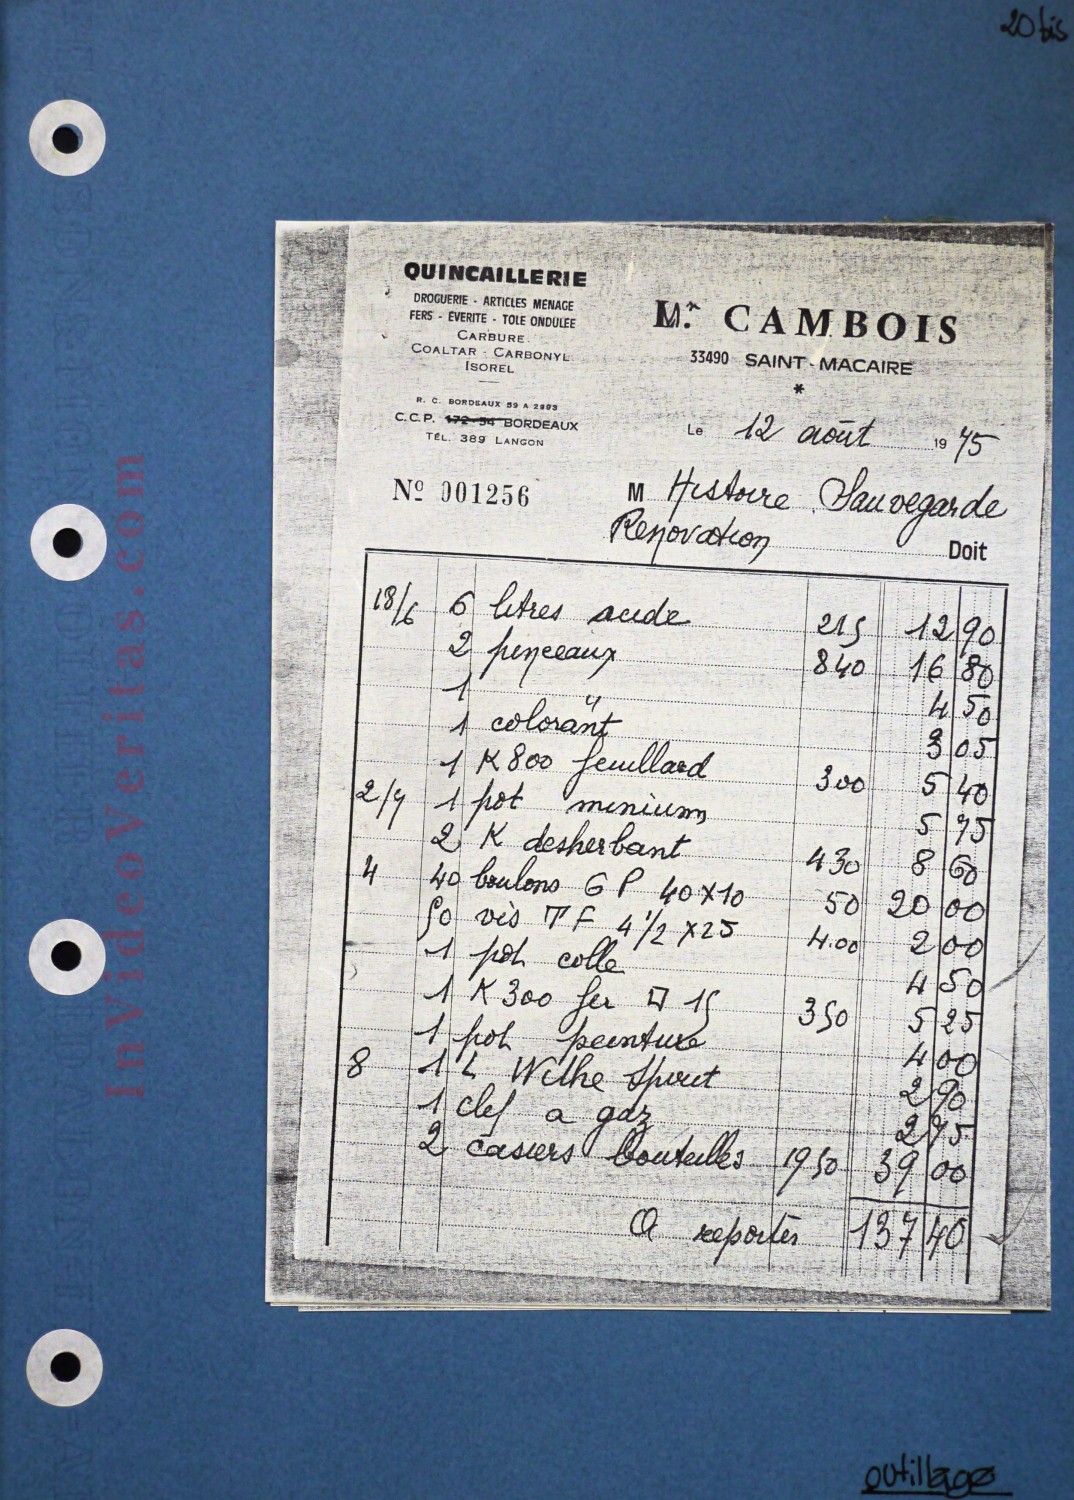 20 bis
QUINCAILLERIE
DROGUERIE - ARTICLES MENAGE
FERS - EVERITE - TOLE ONDULEE
CARBURE
COALTAR - CARBONYL
ISOREL
R. C. BORDEAUX 59 A 2993
C.C.P. 172-54 BORDEAUX
TÉL. 389 LANGON
Mr. CAMBOIS
33490 SAINT-MACAIRE
*
Le 12 août 1975
Nº 001256
M Histoire Sauvegarde
Renovation
Doit
18/6 6 litres acide 215 12 90
2 pinceaux 840 16 80
1 " 4 50
1 colorant 3 05
1 K 800 feuillard 300 5 40
2/7 1 pot minium 5 75
2 K desherbant 430 8 60
4 40 boulons 6 P 40x10 50 20 00
50 vis TF 4 1/2 x25 4.00 2 00
1 pot colle 4 50
1 K 300 fer 15 350 5 25
1 pot peinture 4 00
8 1 L White Spirit 2 90
1 clef a gaz 2 75
2 casiers bouteilles 1950 39 00
A reporter 137 40
InVideoVeritas.com
outillage